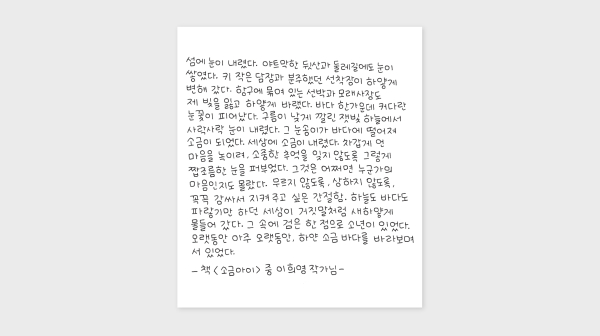 섬에 눈이 내렸다. 야트막한 뒷산과 둘레길에도 눈이
쌓였다. 키 작은 담장과 분주했던 선착장이 하얗게
변해 갔다. 항구에 묶여 있는 선박과 모래사장도
제 빛을 잃고 하얗게 바랬다. 바다 한가운데 커다란
눈꽃이 피어났다. 구름이 낮게 깔린 잿빛 하늘에서
사락사락 눈이 내렸다. 그 눈송이가 바다에 떨어져
소금이 되었다. 세상에 소금이 내렸다. 차갑게 언
마음을 녹이려, 소중한 추억을 잊지 않도록 그렇게
짭조름한 눈을 퍼부었다. 그것은 어쩌면 누군가의
마음인지도 몰랐다. 무르지 않도록, 상하지 않도록,
꼭꼭 감싸서 지켜 주고 싶은 간절함. 하늘도 바다도
파랗기만 하던 세상이 거짓말처럼 새하얗게
물들어 갔다. 그 속에 검은 한 점으로 소년이 있었다.
오랫동안 아주 오랫동안, 하얀 소금 바다를 바라보며
서 있었다.
– 책 <소금아이> 중 이희영 작가님–